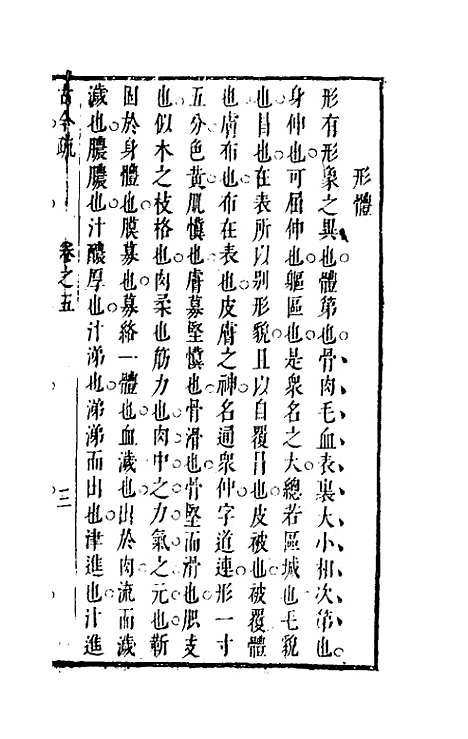 形體
形有形象之異也體第也骨肉毛血表裏大小相次第也
身伸也可屈伸也軀區也是眾名之大總若區域也毛貌
也冒也在表所以別形貌且以自覆冒也皮被也被覆體
也膚布也布在表也皮膚之神名通眾仲字道連形一寸
五分色黃肌慎也膚幕堅慎也骨滑也骨堅而滑也肢支
也似木之枝格也肉柔也筋力也肉中之力氣之元也靳
固於身體也膜幕也幕絡一體也血濊也出於肉流而濊
濊也膿膿也汁醲厚也汁涕也涕涕而出也津進也汁進
古今疏
卷之五
三